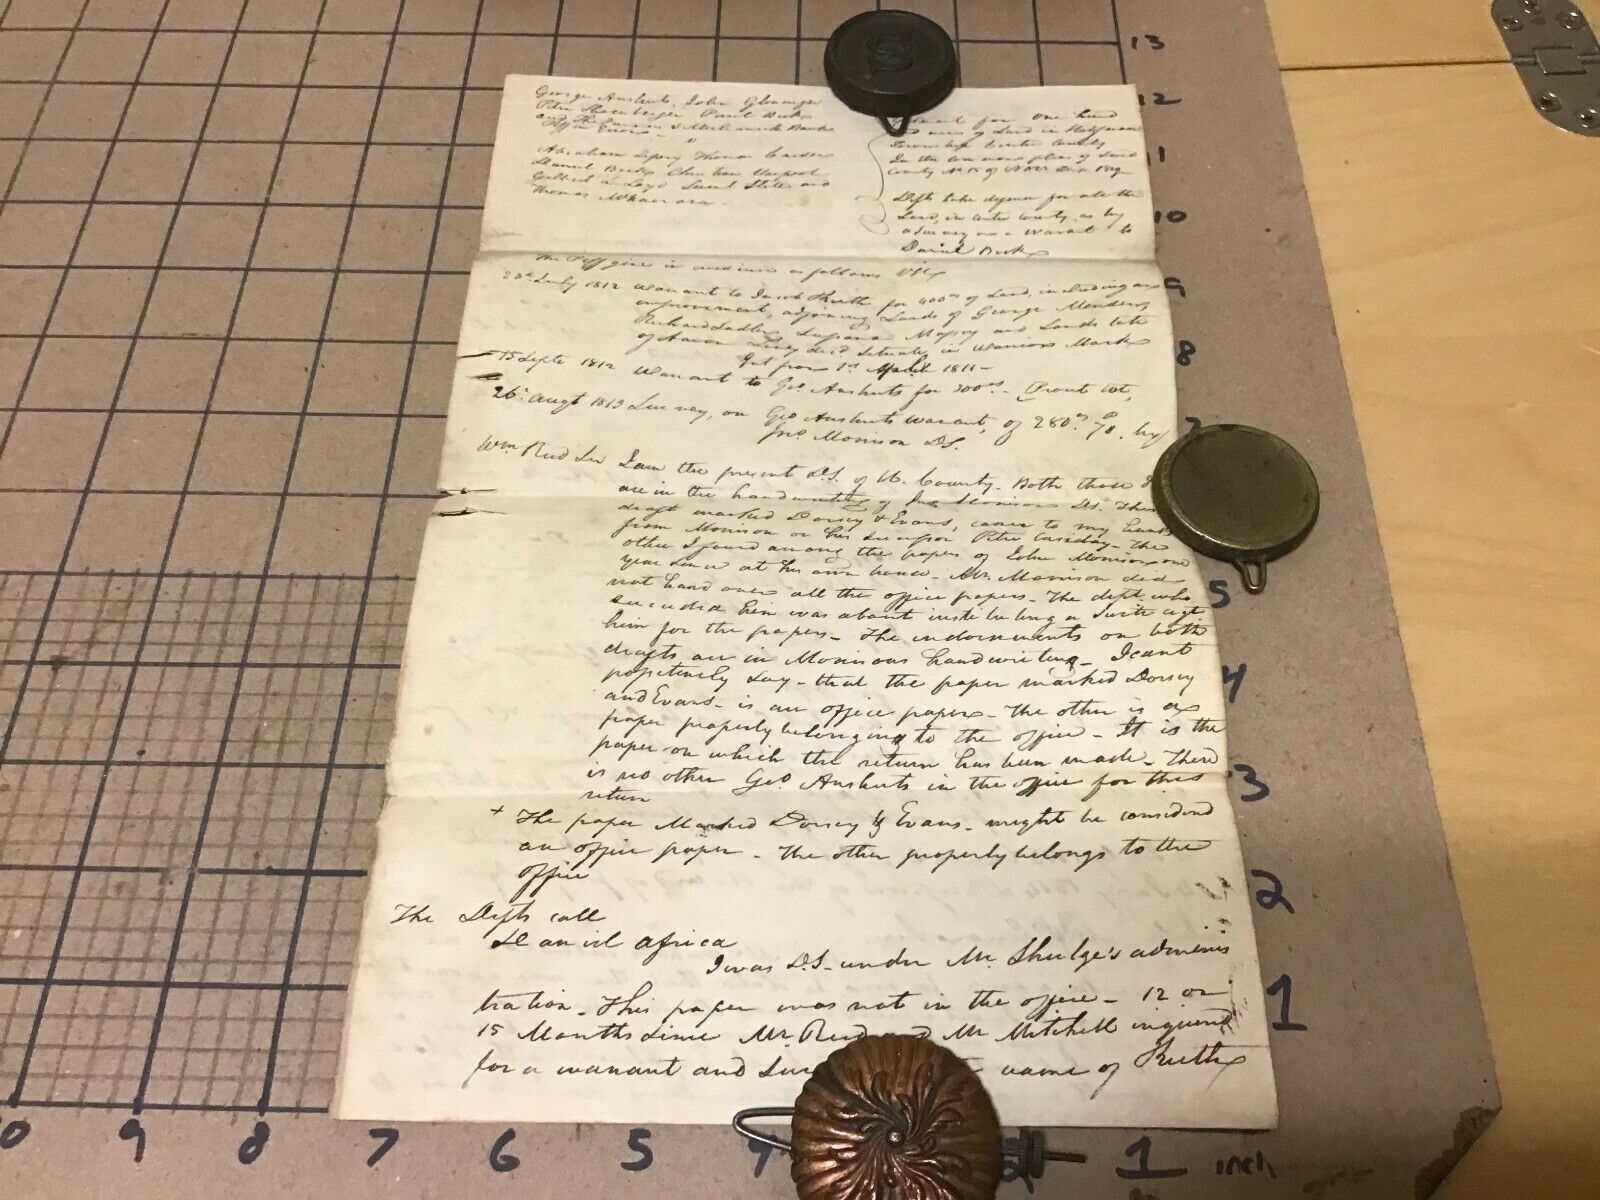 George Anshuts, John Gloninger
Peter Shoenberger Paul
and The Farmers & Mechanicks Bank
vs
Abraham Thomas
Daniel Buck
Gilbert Lloyd Saml Stile and
Thomas
for one hund
acres of Land in
Township Centre County
In the common pleas of said
county No 15 of Novr 1819
Defts take defence for all the
Land, in Centre County, as by
a survey on a Warrant to
Daniel Buck
The Plffs give in evidence as follows Viz
23d July 1812 Warrant to Jacob Ruth for 400as of Land, including an
improvement, adjoining Lands of George
Richard Sadler, Massey and Lands late
of Aaron decd Situate in Warriors Mark
Int from 1st April 1811 –
15 Septr 1812 Warrant to Geo. Anshuts for 300as –
26th Augt 1813 Survey, on Geo Anshuts warrant, of 280as 70 ps by
Jno Morrison D.S.
Wm Reed Sw I am the present D.S. of H. County. Both those
are in the handwriting of Jno Morrison D.S. This
draft marked Dorsey & Evans, came to my hands
from Morrison or his successor Peter Cassiday – The
other I found among the papers of John Morrison one
year since at his own house – Mr. Morrison did
not hand over all the office papers – The dept. who
succeeded him was about instituting a Suit agt
him for the papers – The indorsements on both
drafts are in Morrisons handwriting – I cant
positively say – that the paper marked Dorsey
and Evans – is an office paper – The other is a
paper properly belonging to the office – It is the
paper on which the return has been made – There
is no other Geo. Anshuts in the office for this
return
+ The paper Marked Dorsey & Evans – might be considered
an office paper – The other properly belongs to the
office
The Defts call
Daniel Africa
I was D.S. under Mr. Shulze's adminis
tration – This paper was not in the office – 12 or
15 Months since Mr. Reed and Mr Mitchell inquired
for a warrant and name of Ruth
13
12
11
10
9
8
7
5
4
3
2
1
0
9
8
7
6
5
1 inch